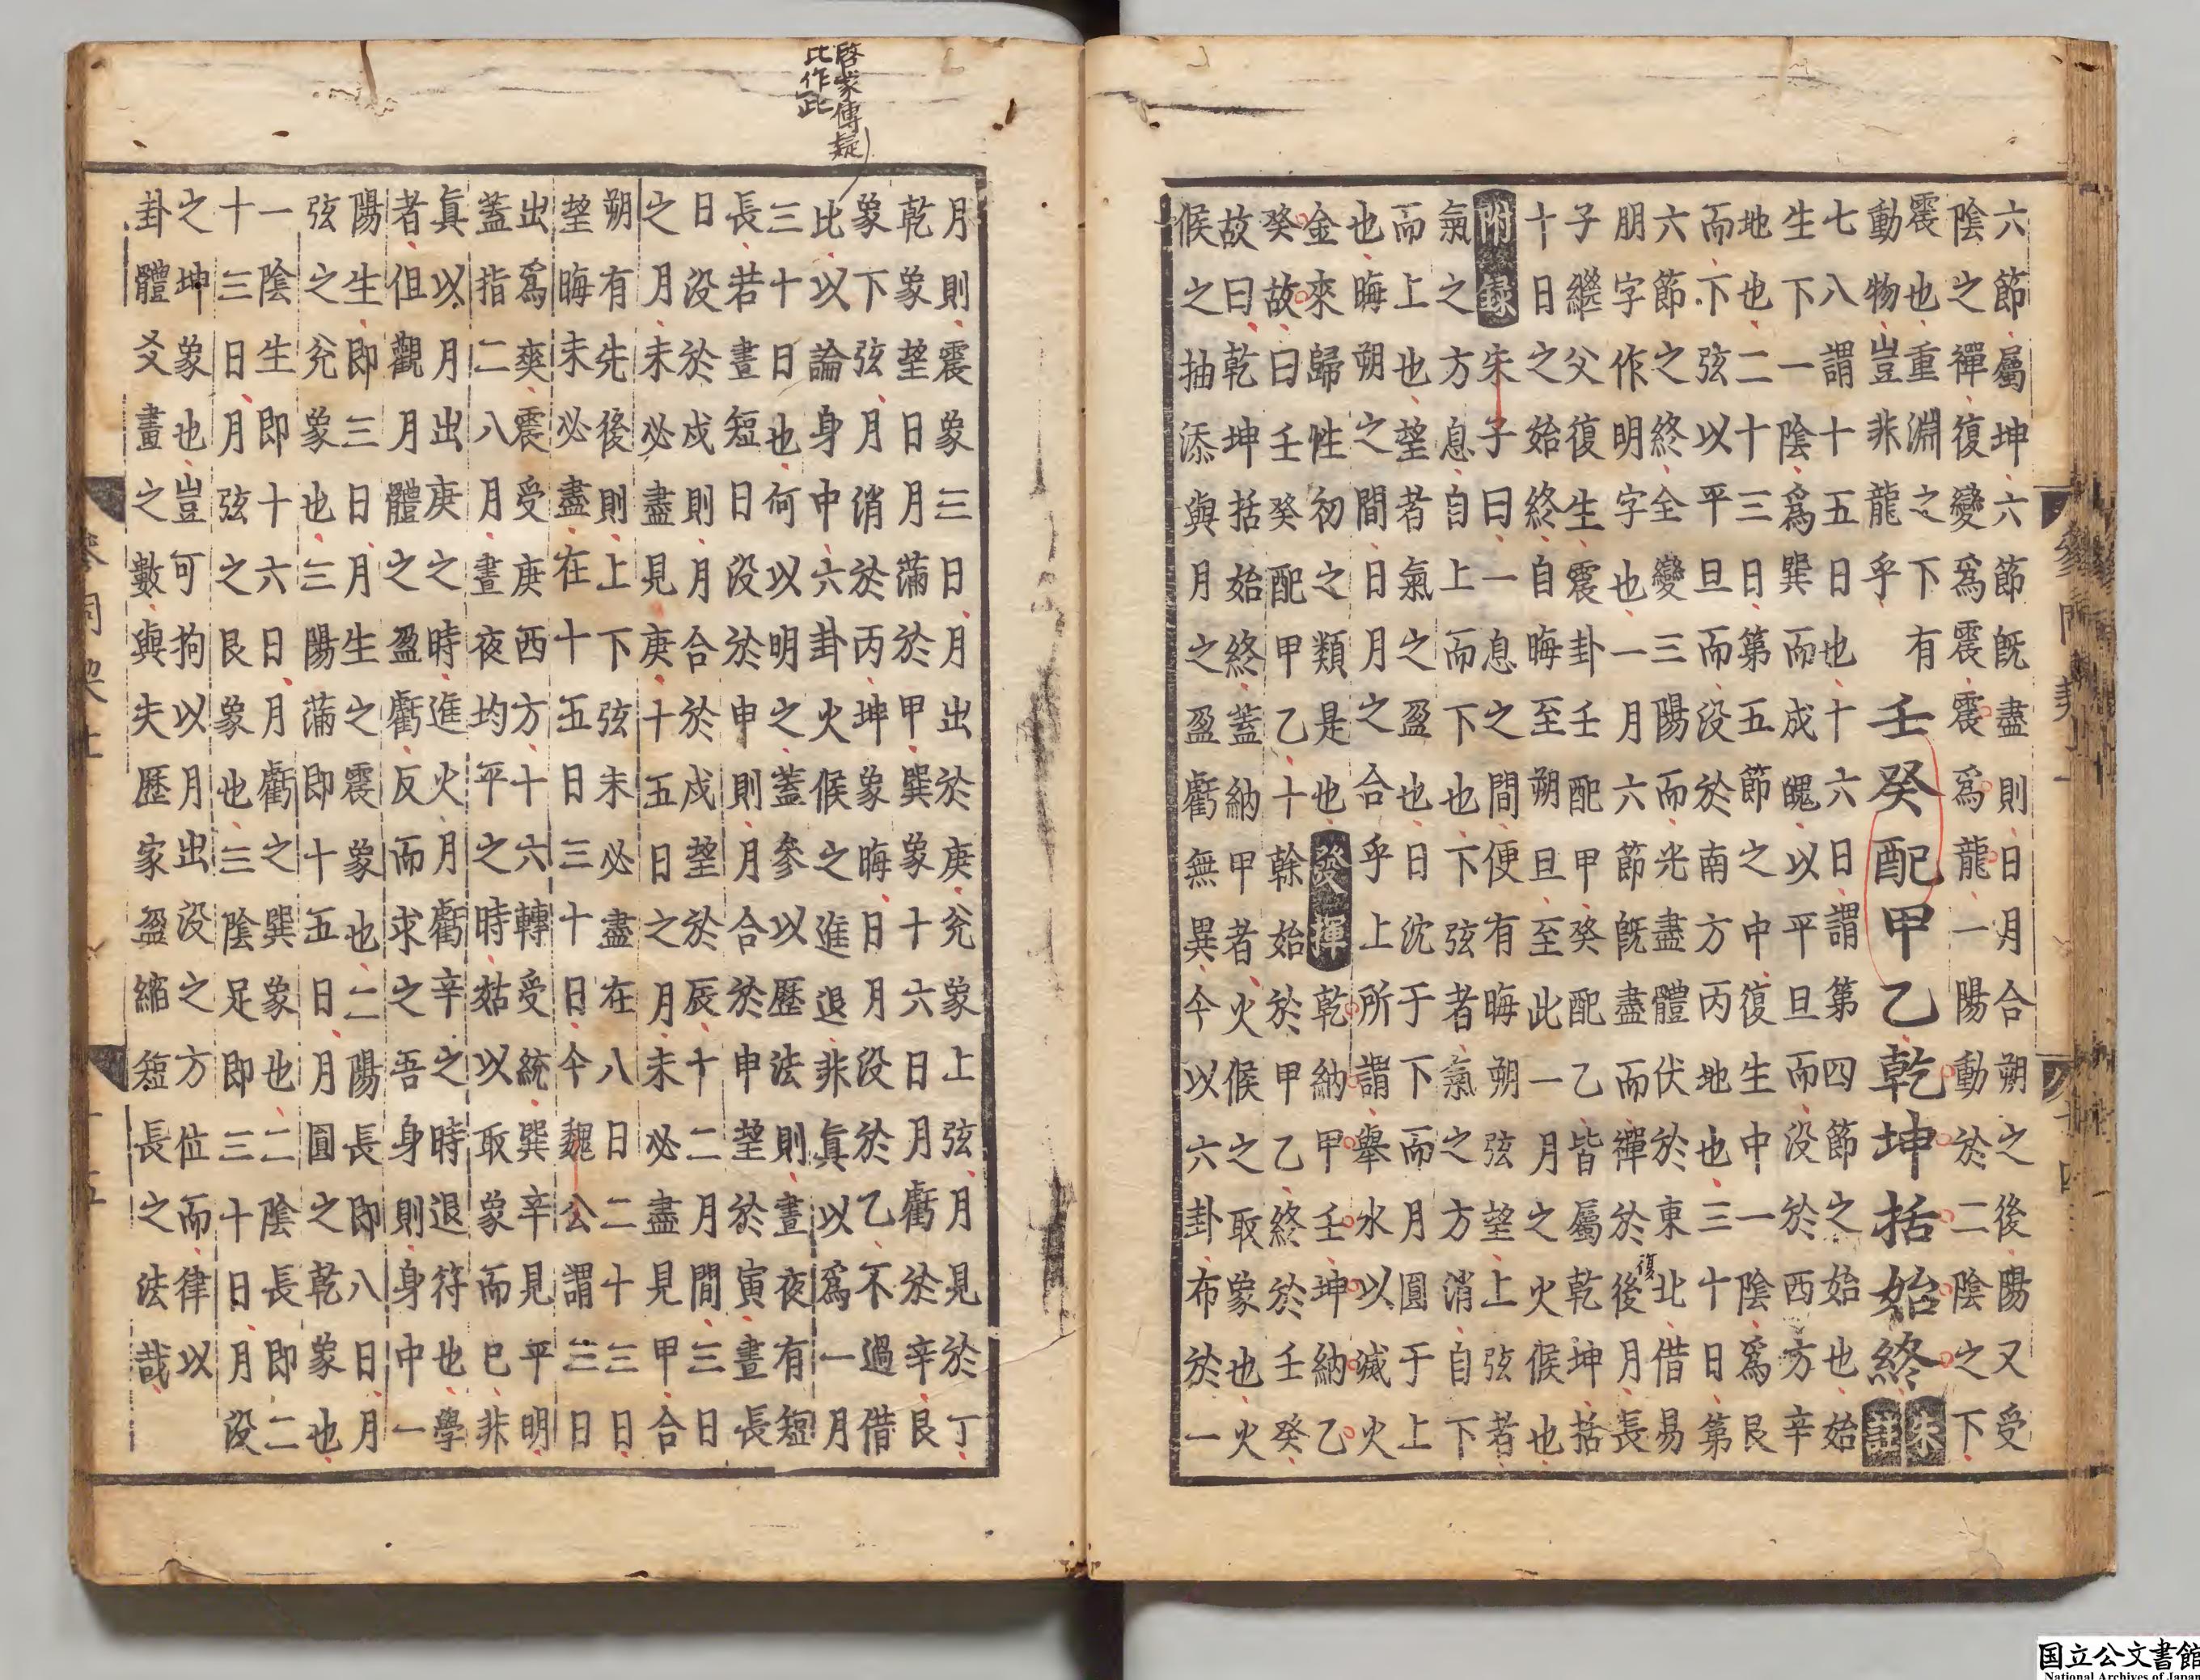 六節屬坤六節既盡則日月合朔之後陽又受
陰之禪復變爲震震爲龍一陽動於二陰之下
震也重淵之下有
動物豈非龍乎
壬癸配甲乙乾坤括始終
朱註
七八謂十五日也十六日謂第四節之始也始
生下一陰爲巽而成魄以平旦而没於西方辛
地也二十三日第五節之中復生中一陰爲艮
而下弦以平旦而没於南方丙地也三十日第
六節之終全變三陽而光盡體伏於東北借易
朋字作明字也一月六節既盡而禪於後月長
復
子繼父復生震卦壬配甲癸配乙皆屬乾坤括
十日之始終自晦至朔旦至此一月之火候也
附錄朱子曰一息之間便有晦朔弦望上弦者
氣之方息自上而下也下弦者氣之方消自下
而上也望者氣之盈也日沈于下而月圓于上
也晦朔之間日月之合乎上所謂舉水以滅火
金來歸性初之類是也發揮乾納甲壬坤納乙
癸故曰壬癸配甲乙十榦始於甲乙終於壬癸
故曰乾坤括始終蓋納甲者火候之取象也火
候之抽添與月之盈虧無異今以六卦布於一
啓蒙傳疑
比作此
月則震象三日月出於庚兊象上弦月見於丁
乾象望日月滿於甲巽象十六日月虧於辛艮
象下弦月消於丙坤象晦日月没於乙不過借
比以論身中六卦火候之進退非眞以爲一月
三十日也何以明之蓋參以歷法則晝夜有短
長若晝短日没於申則月合於申望於寅晝長
日没於戍則月合於戍望於辰十二月間三日
之月未必盡見庚十五日之月未必盡見甲合
朔有先後則上下弦未必盡在八日二十三日
望晦未必盡在十五日三十日今魏公謂三日
出爲爽震受庚西方十六轉受統巽辛見平明
蓋指二八月晝夜均平之時姑以取象而巳非
眞以月出庚之時進火月虧辛之時退符也學
者但觀月體之盈虧反而求之吾身則身中一
陽生即三日月生之震象也二陽長即八日月
弦之兊象也三陽滿即十五日月圓之乾象也
一陰生即十六日月虧之巽象也二陰長即二
十三日月弦之艮象也三陰足即三十日月没
之坤象也豈可拘以月出没之方位而律以
卦體爻畫之數與夫歷家盈縮短長之法哉
国立公文書館
National Archives of Japan